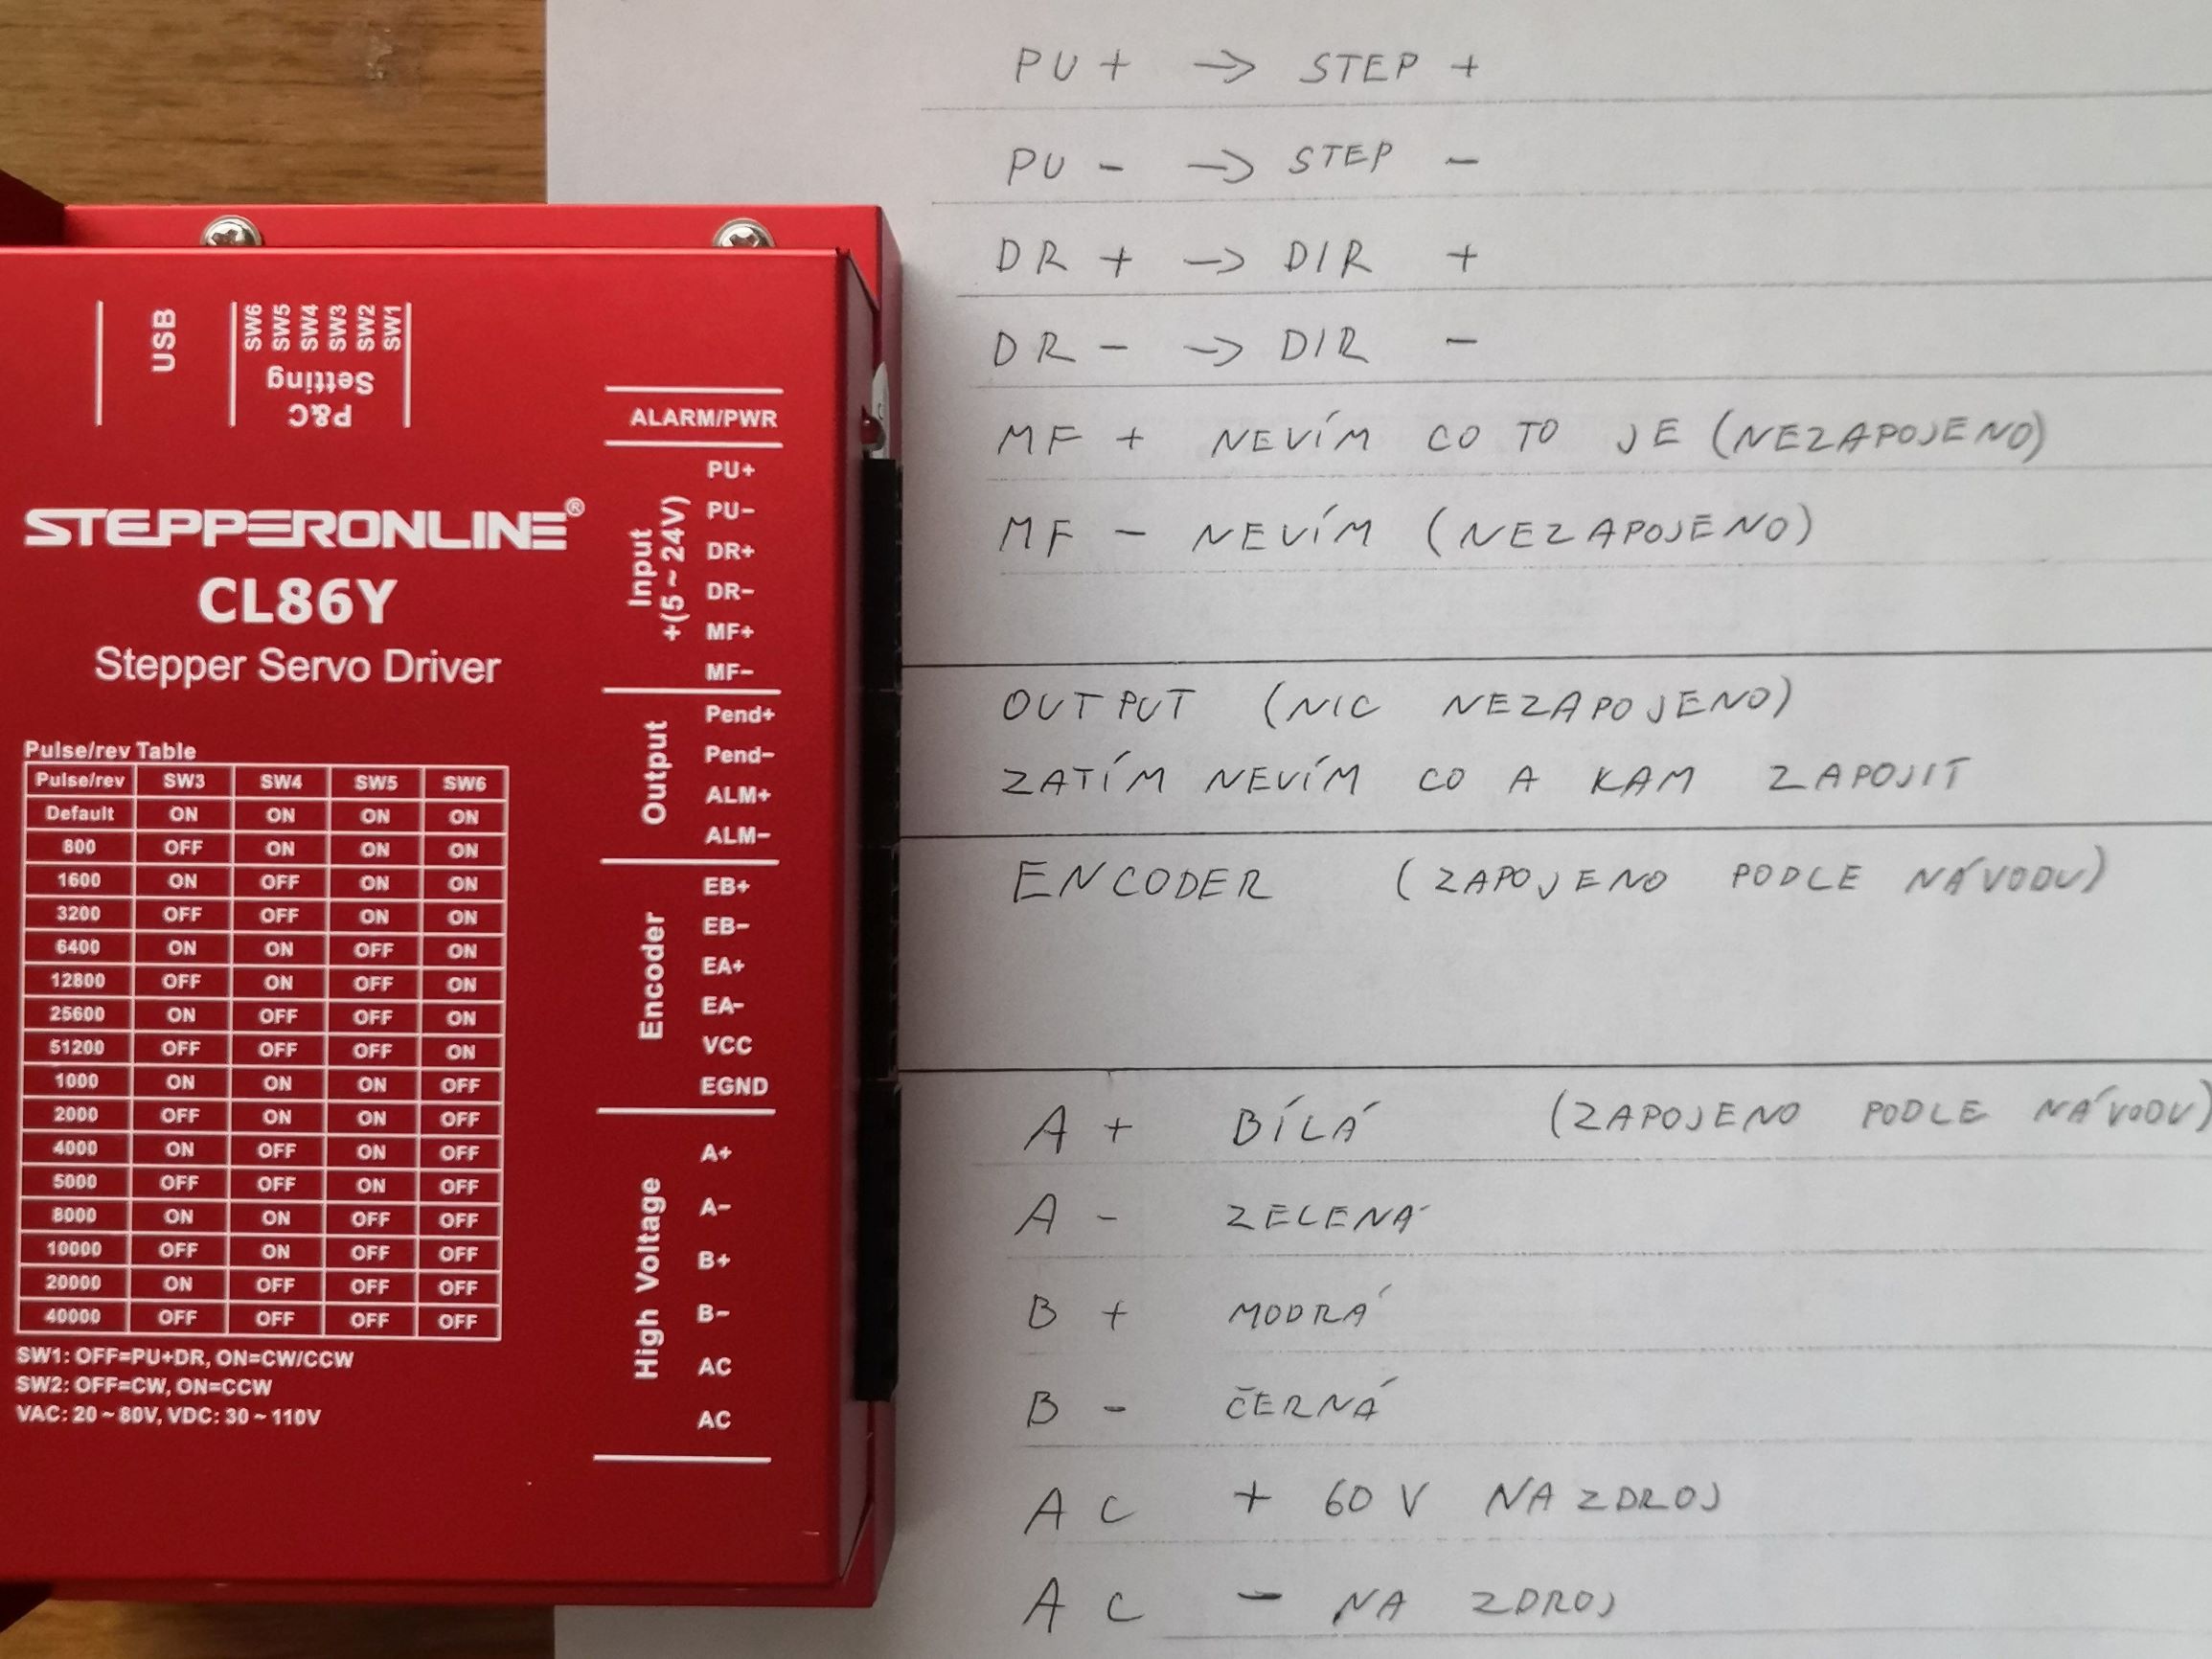 PU + → STEP +
PU - → STEP -
DR + → DIR +
DR - → DIR -
MF + NEVÍM CO TO JE (NEZAPOJENO)
MF - NEVÍM (NEZAPOJENO)
OUTPUT (NIC NEZAPOJENO)
ZATÍM NEVÍM CO A KAM ZAPOJIT
ENCODER (ZAPOJENO PODLE NÁVODU)
A + BÍLÁ (ZAPOJENO PODLE NÁVODU)
A - ZELENÁ
B + MODRÁ
B - ČERNÁ
AC + 60 V NA ZDROJ
AC - NA ZDROJ
USB
SW6
SW5
SW4
SW3
SW2
SW1
P&C
Setting
STEPPERONLINE®
CL86Y
Stepper Servo Driver
Pulse/rev Table
Pulse/rev SW3 SW4 SW5 SW6
Default ON ON ON ON
800 OFF ON ON ON
1600 ON OFF ON ON
3200 OFF OFF ON ON
6400 ON ON OFF ON
12800 OFF ON OFF ON
25600 ON OFF OFF ON
51200 OFF OFF OFF ON
1000 ON ON ON OFF
2000 OFF ON ON OFF
4000 ON OFF ON OFF
5000 OFF OFF ON OFF
8000 ON ON OFF OFF
10000 OFF ON OFF OFF
20000 ON OFF OFF OFF
40000 OFF OFF OFF OFF
SW1: OFF=PU+DR, ON=CW/CCW
SW2: OFF=CW, ON=CCW
VAC: 20~80V, VDC: 30~110V
ALARM/PWR
Input
+(5~24V)
PU+
PU-
DR+
DR-
MF+
MF-
Output
Pend+
Pend-
ALM+
ALM-
Encoder
EB+
EB-
EA+
EA-
VCC
EGND
High Voltage
A+
A-
B+
B-
AC
AC